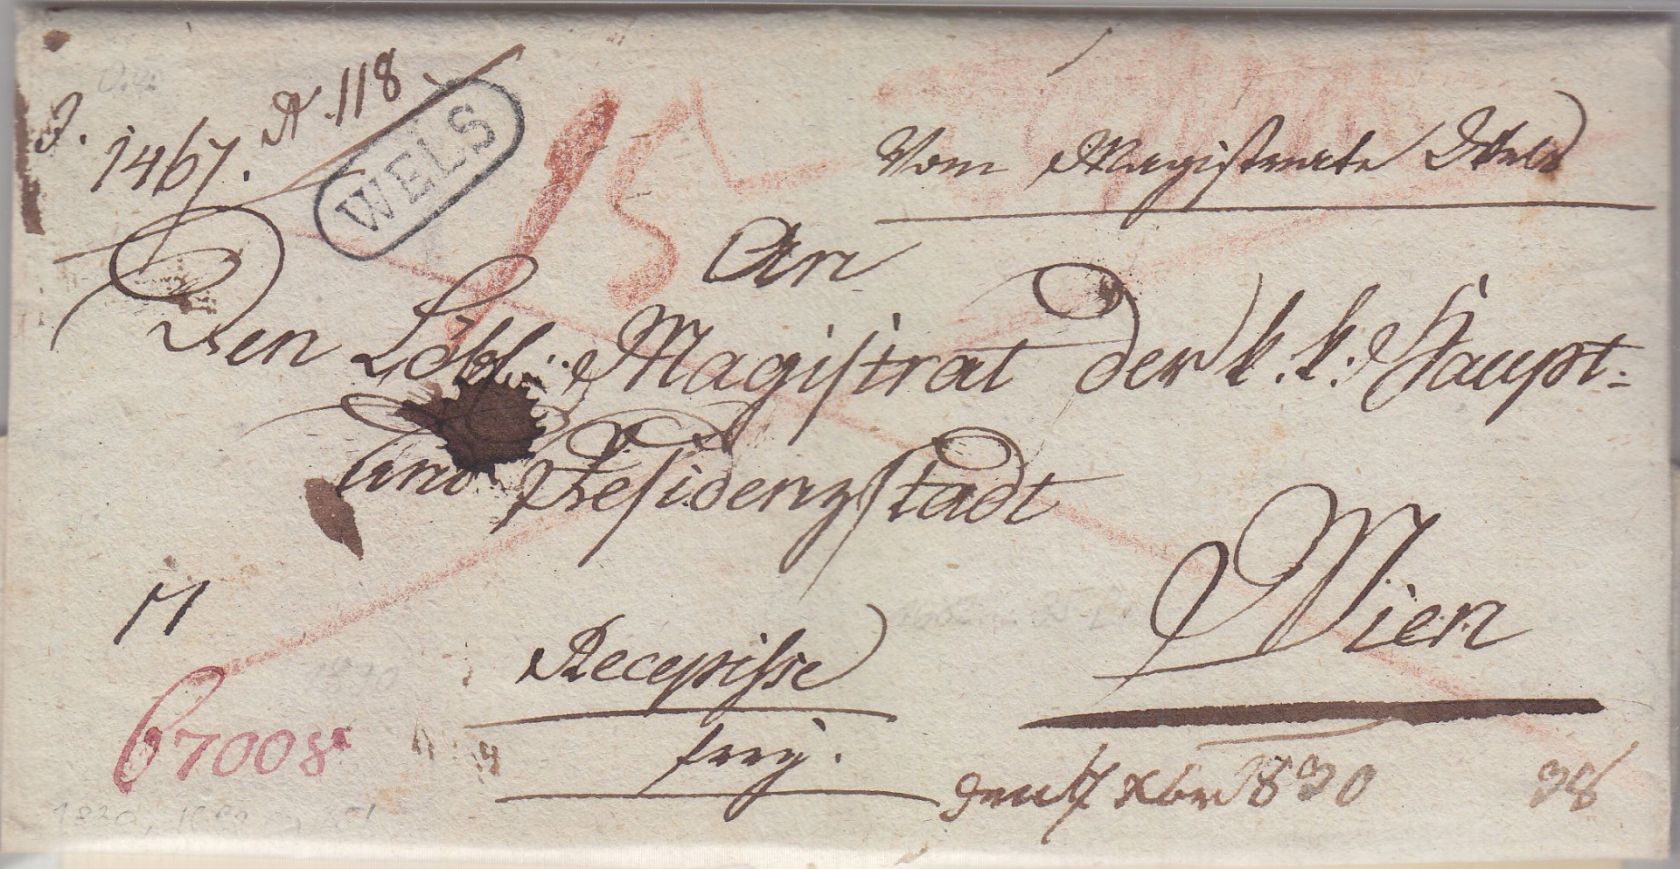 1467. N. 118
WELS
15
Vom Magistrate Wels
An
Den Löbl: Magistrat der k. k: Haupt-
und Residenzstadt
Wien
Recepisse
frey.
67008
den 17 Xbr 1830